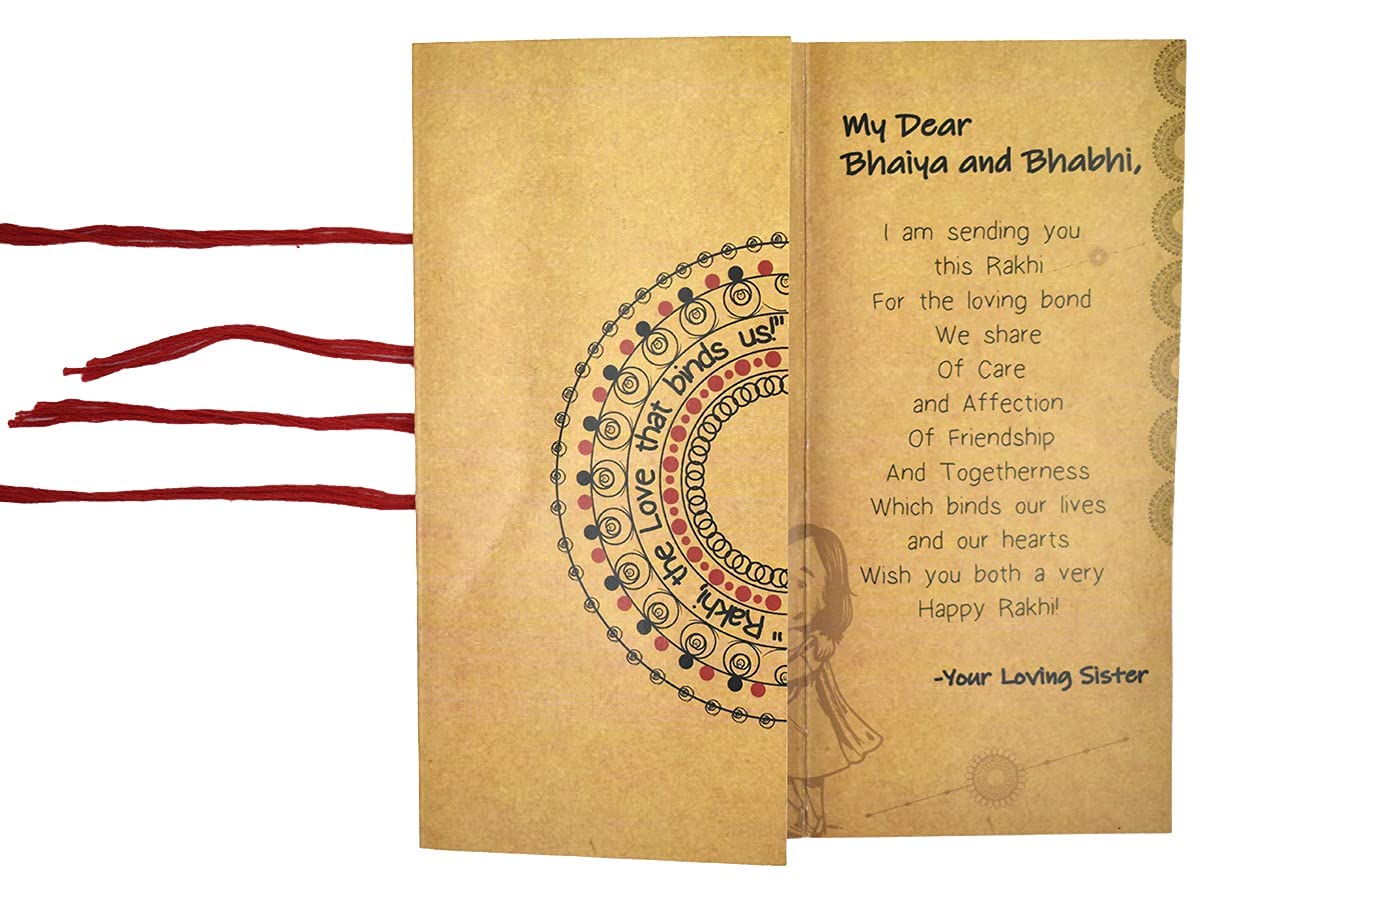 "Rakhi, the Love that binds us!"
My Dear
Bhaiya and Bhabhi,
I am sending you
this Rakhi
For the loving bond
We share
Of Care
and Affection
Of Friendship
And Togetherness
Which binds our lives
and our hearts
Wish you both a very
Happy Rakhi!
-Your Loving Sister